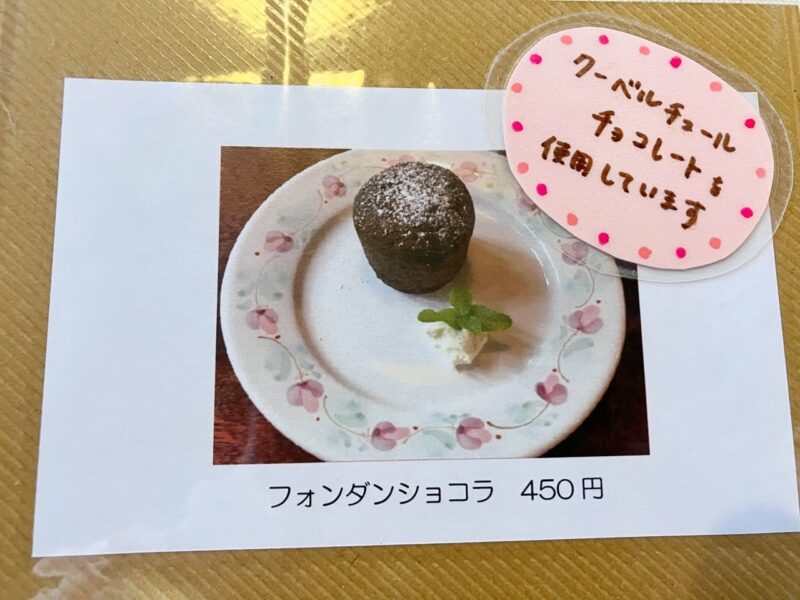 クーベルチュール
チョコレートを
使用しています
フォンダンショコラ　450円